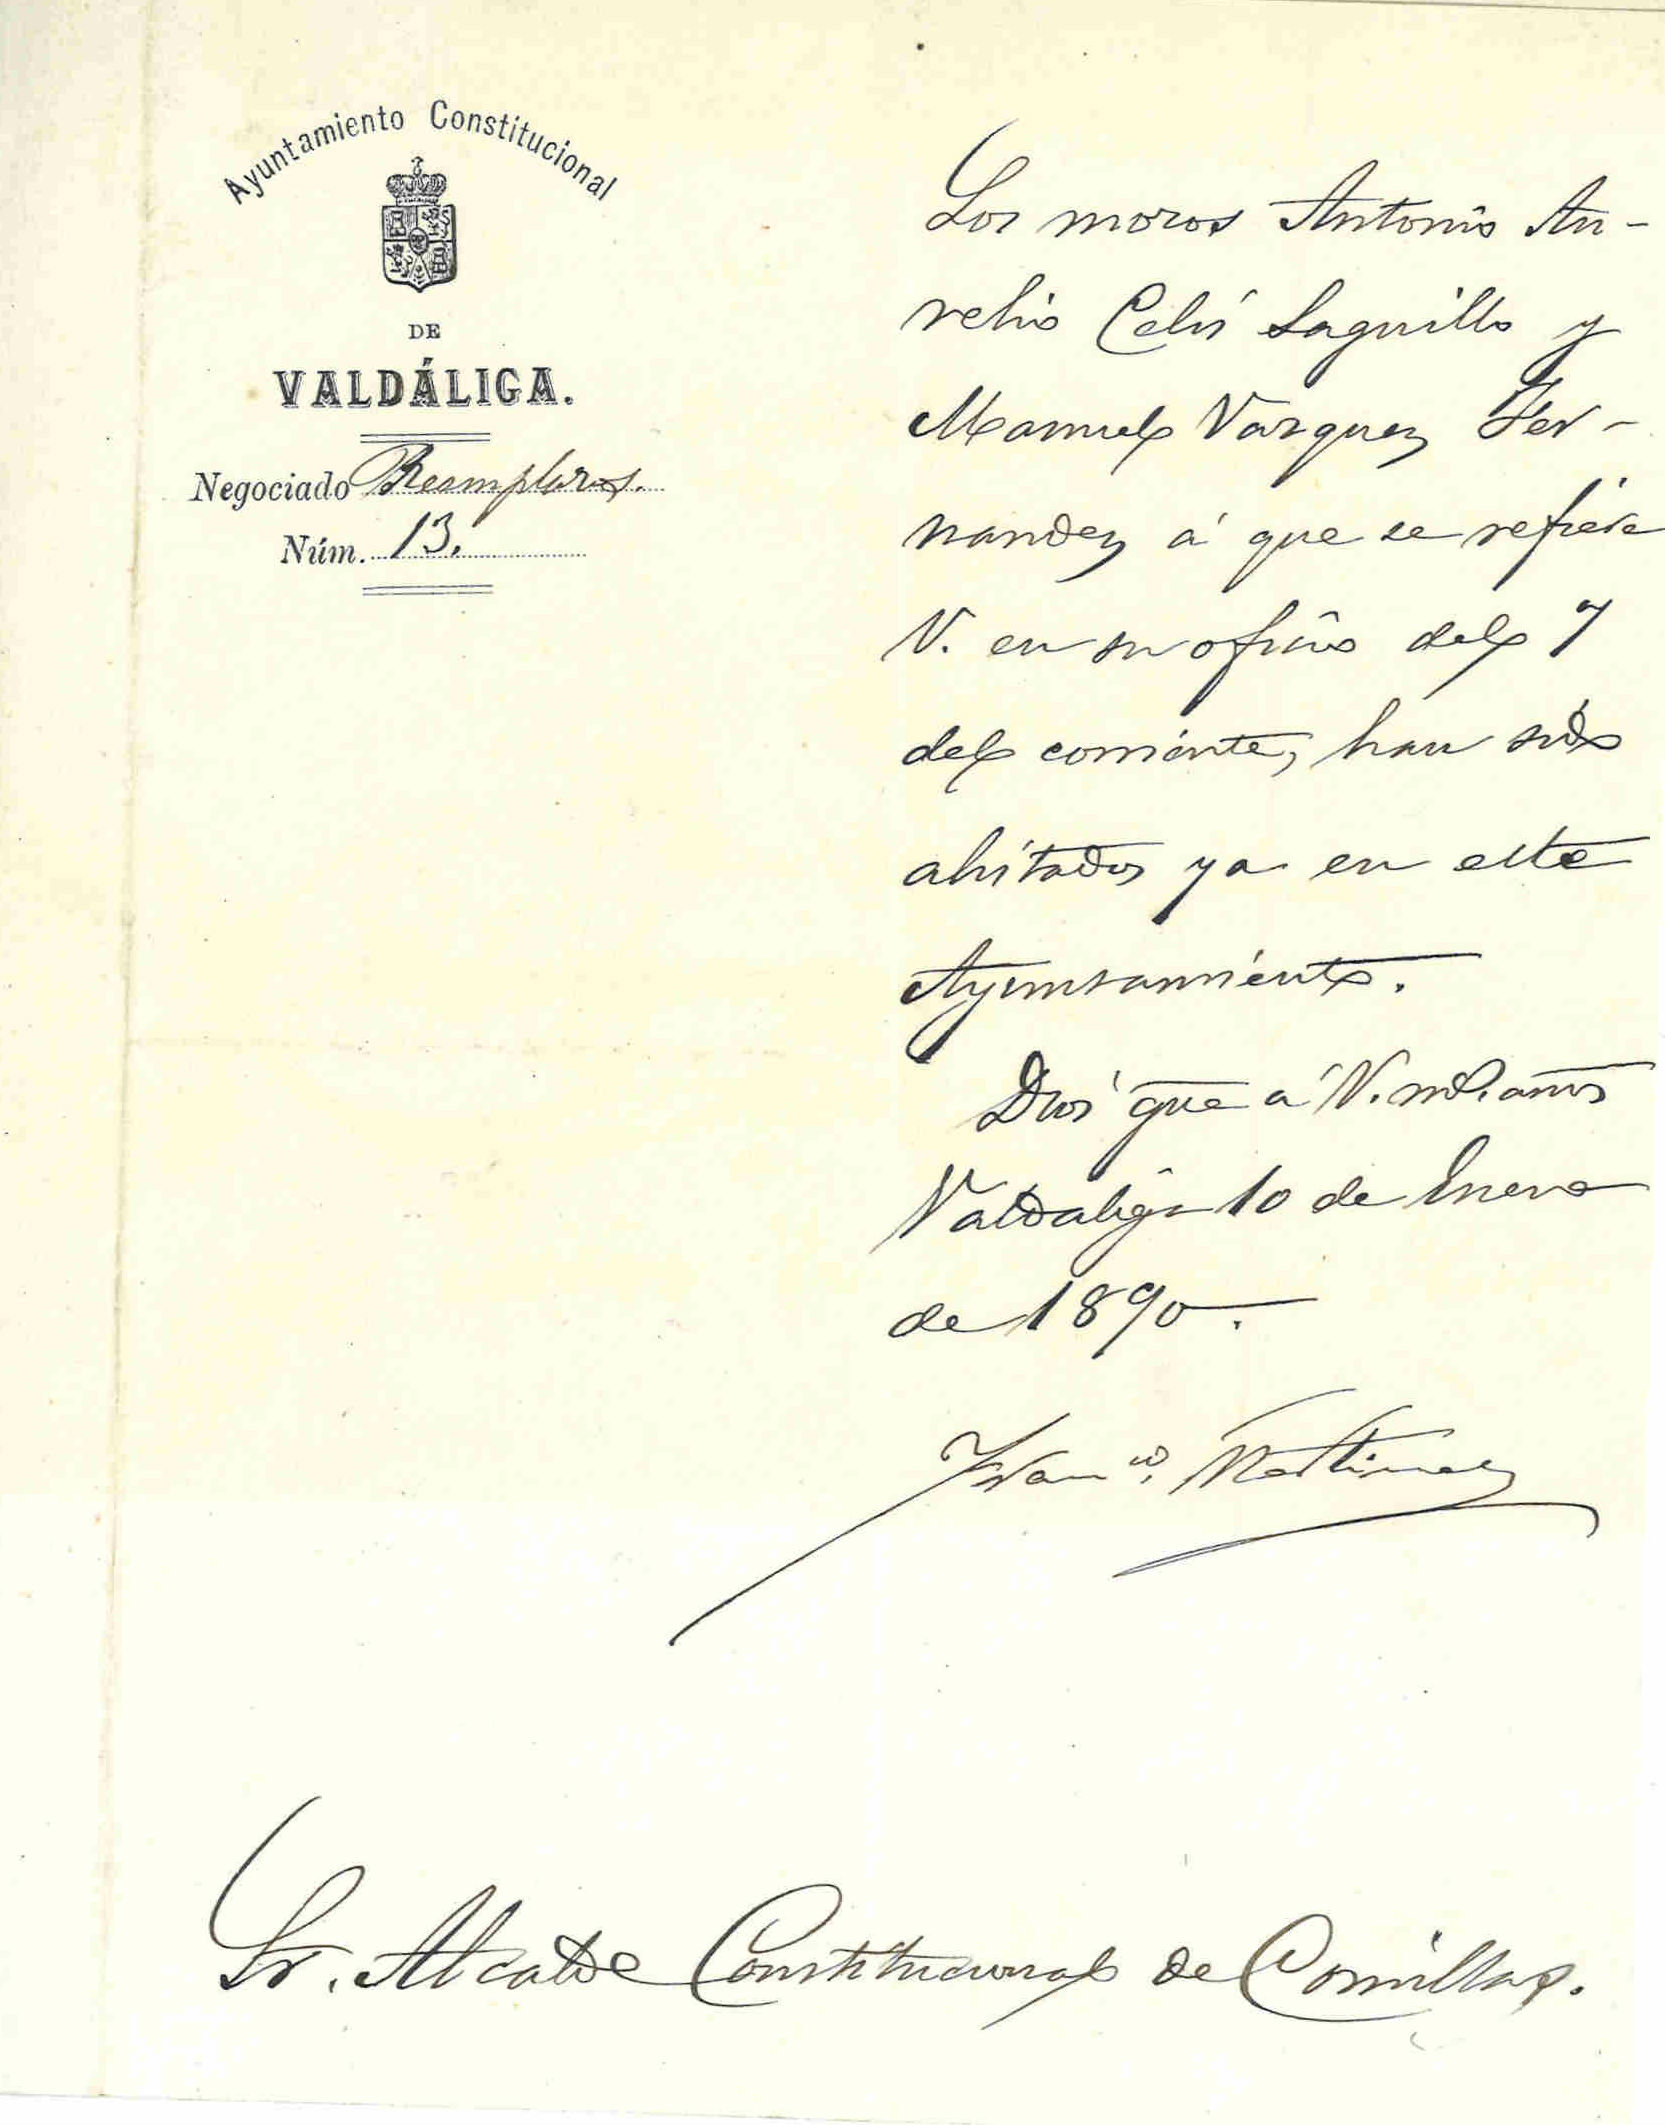 Ayuntamiento Constitucional
DE
VALDÁLIGA.
Negociado Reemplazos.
Núm. 13.
Los mozos Antonio Au-
relio Celis Laguillo y
Manuel Vazquez Fer-
nandez á que se refiere
V. en su oficio del 7
del corriente, han sido
alistados ya en este
Ayuntamiento.
Dios gue á V. ms. años
Valdaliga 10 de Enero
de 1890.
Franco. Martinez
Sr. Alcalde Constitucional de Comillas.